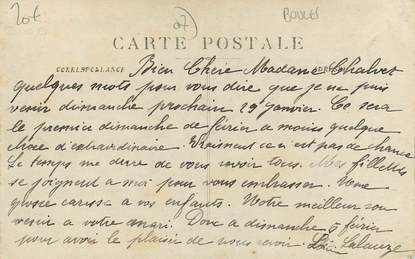 20€
07)
BOULES
CARTE POSTALE
CORRESPONDANCE
Bien Chère Madame Chalvet
quelques mots pour vous dire que je ne puis
venir dimanche prochain 29 Janvier. Ce sera
le premier dimanche de février a moins quelque
chose d'extraordinaire. Vraiment ce n'est pas de chance
Le temps me dure de vous revoir tous. Mes fillettes
se joignent a moi pour vous embrasser. Une
grosse caresse a vos enfants. Notre meilleur sou
venir a votre mari. Donc a dimanche 5 février
pour avoir le plaisir de vous revoir. Lalauze